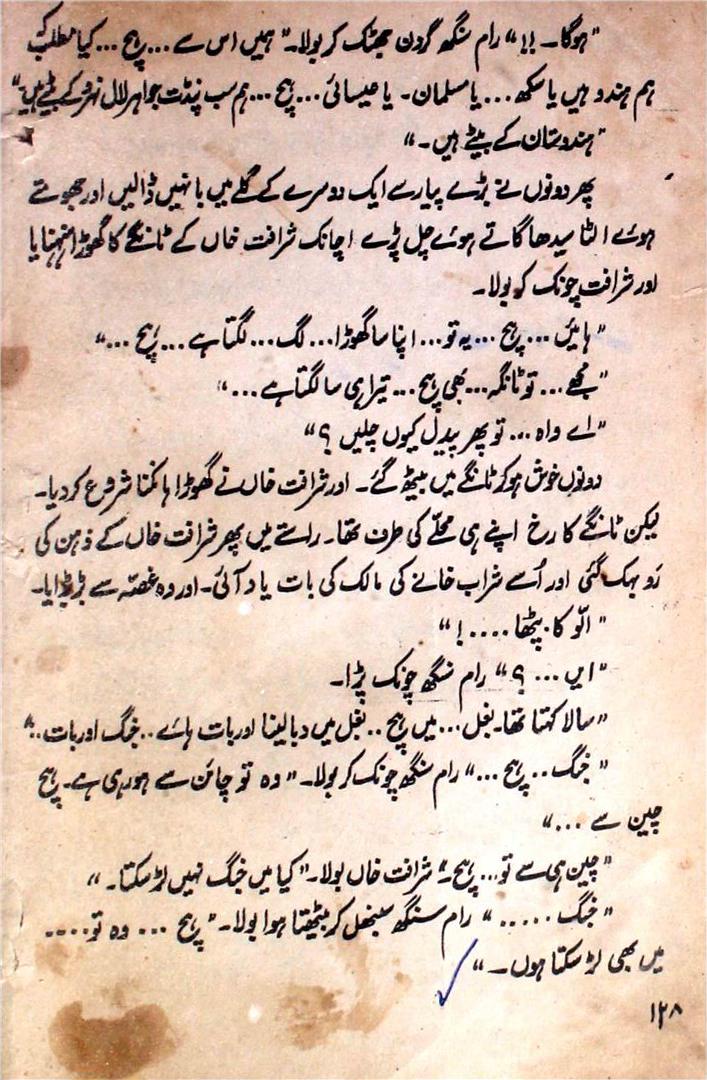 "ہوگا۔ !!" رام سنگھ گردن جھٹک کر بولا۔ "ہمیں اس سے ... ہچ ... کیا مطلب کہ
ہم ہندو ہیں یا سکھ ... یا مسلمان۔ یا عیسائی ... ہچ ... ہم سب پنڈت جواہر لال نہرو کے بیٹے ہیں"
"ہندوستان کے بیٹے ہیں۔"
پھر دونوں نے بڑے پیار سے ایک دوسرے کے گلے میں بانہیں ڈالیں اور جھومتے
ہوئے الٹا سیدھا گاتے ہوئے چل پڑے اچانک شرافت خاں کے ٹانگے کا گھوڑا ہنہنایا
اور شرافت چونک کو بولا۔
"ہائیں ... ہچ ... یہ تو ... اپنا سا گھوڑا ... لگ ... لگتا ہے ... ہچ ..."
"مجھے ... تو ٹانگہ ... بھی ہچ ... تیرا ہی سا لگتا ہے ..."
"اے واہ ... تو پھر پیدل کیوں چلیں ؟"
دونوں خوش ہوکر ٹانگے میں بیٹھ گئے۔ اور شرافت خاں نے گھوڑا ہانکنا شروع کردیا۔
لیکن ٹانگے کا رخ اپنے ہی محلّے کی طرف تھا۔ راستے میں پھر شرافت خاں کے ذہن کی
رَو بہک گئی اور اُسے شراب خانے کی مالک کی بات یاد آئی۔ اور وہ غصّہ سے بڑبڑایا۔
"الّو کا پٹھا .... !"
"ایں ... ؟" رام سنگھ چونک پڑا۔
"سالا کہتا تھا۔ بغل ... میں ہچ .. بغل میں دبا لینا اور بات ہائے .. جنگ اور بات .."
"جنگ .. ہچ ..." رام سنگھ چونک کر بولا۔ "وہ تو چائن سے ہو رہی ہے۔ ہچ
چین سے ..."
"چین ہی سے تو ... ہچ۔" شرافت خاں بولا۔ "کیا میں جنگ نہیں لڑ سکتا۔"
"جنگ ....." رام سنگھ سنبھل کر بیٹھتا ہوا بولا۔ "ہچ ... وہ تو ....
میں بھی لڑ سکتا ہوں۔"
۱۲۸